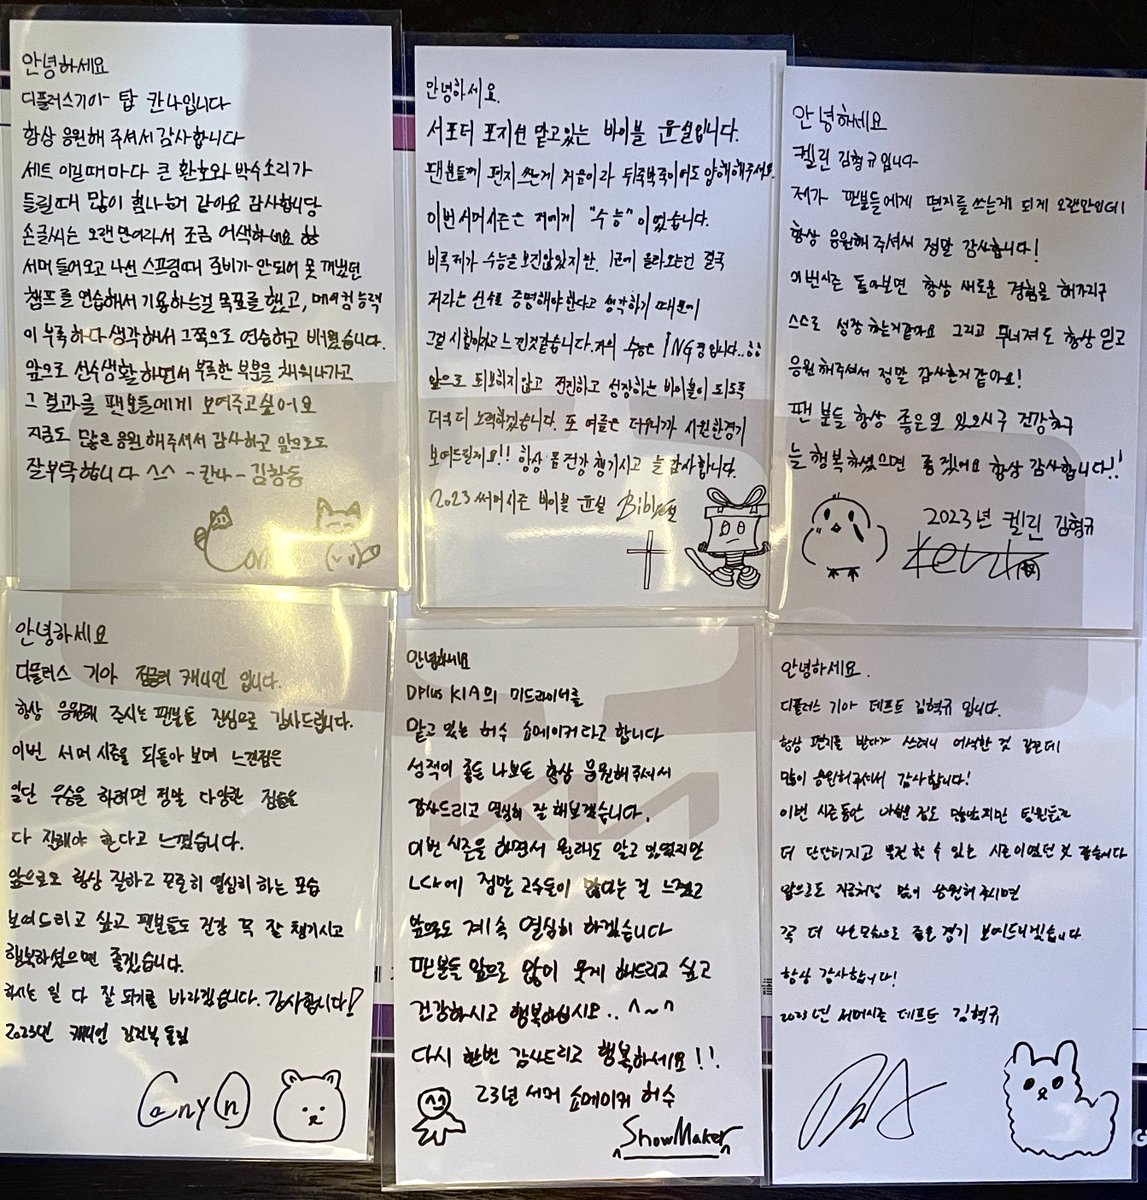 안녕하세요
디플러스기아 탑 칸나입니다
항상 응원해 주셔서 감사합니다
세트 이길때마다 큰 환호와 박수소리가
들릴때 많이 힘나는거 같아요 감사합니당
손글씨는 오랜만이라서 조금 어색하네요 하하
서머 들어오고 나선 스프링때 준비가 안되어 못 꺼냈던
챔프를 연습해서 기용하는걸 목표를 했고, 메이킹 능력
이 부족하다 생각해서 그쪽으로 연습하고 배웠습니다.
앞으로 선수생활 하면서 부족한 부분을 채워나가고
그 결과를 팬분들에게 보여주고싶어요
지금도 많은 응원해주셔서 감사하고 앞으로도
잘부탁합니다 ㅅㅅ -칸나- 김창동
안녕하세요.
서포터 포지션 맡고있는 바이블 윤설입니다.
팬분들께 편지 쓰는게 처음이라 뒤죽박죽이어도 양해해주세요.
이번 서머시즌은 저에게 "수능"이었습니다.
비록 제가 수능을 보진않았지만. 1군에 올라오는건 결국
저라는 선수를 증명해야한다고 생각하기 때문에
그걸 시험이라고 느낀것같습니다. 저의 수능은 ING중입니다..ㅎㅎ
앞으로 퇴보하지않고 전진하고 성장하는 바이블이 되도록
더욱 더 노력하겠습니다. 또 여름은 더우니까 시원한경기
보여드릴게요!! 항상 몸 건강 챙기시고 늘 감사합니다.
2023 써머시즌 바이블 윤설 Bible
안녕하세요
켈린 김형규입니다
제가 팬분들에게 편지를 쓰는게 되게 오랜만인데
항상 응원해주셔서 정말 감사합니다!
이번시즌 돌아보면 항상 새로운 경험을 해가지구
스스로 성장하는거같아요 그리고 무너져도 항상 믿고
응원해주셔서 정말 감사한거 같아요!
팬분들 항상 좋은일 있으시구 건강하구
늘 행복하셨으면 좋겠어요 항상 감사합니다!!
2023년 켈린 김형규
안녕하세요
디플러스 기아 정글러 캐니언 입니다.
항상 응원해 주시는 팬분들 진심으로 감사드립니다.
이번 서머 시즌을 되돌아 보며 느낀점은
일단 우승을 하려면 정말 다양한 점들을
다 잘해야 한다고 느꼈습니다.
앞으로도 항상 잘하고 꾸준히 열심히 하는 모습
보여드리고 싶고 팬분들도 건강 꼭 잘 챙기시고
행복하셨으면 좋겠습니다.
하시는 일 다 잘 되기를 바라겠습니다. 감사합니다!
2023년 캐니언 김건부 올림
Canyon
안녕하세요
Dplus KIA의 미드라이너를
맡고 있는 허수 쇼메이커라고 합니다
성적이 좋든 나쁘든 항상 응원해주셔서
감사드리고 열심히 잘 해보겠습니다.
이번 시즌을 하면서 원래도 알고 있었지만
LCK에 정말 고수들이 많다는 걸 느꼈고
앞으로도 계속 열심히 하겠습니다
팬분들 앞으로 많이 웃게 해드리고 싶고
건강하시고 행복하십시요.. ^~^
다시 한번 감사드리고 행복하세요!!
23년 서머 쇼메이커 허수
ShowMaker
안녕하세요.
디플러스 기아 데프트 김혁규 입니다.
항상 편지를 받다가 쓰려니 어색한 것 같은데
많이 응원해주셔서 감사합니다!
이번 시즌동안 아쉬운 점도 많았지만 팀원들과
더 단단해지고 발전 할 수 있는 시즌이었던 것 같습니다
앞으로도 지금처럼 많이 응원해 주시면
꼭 더 나은 모습으로 좋은 경기 보여드리겠습니다
항상 감사합니다!
2023년 서머시즌 데프트 김혁규